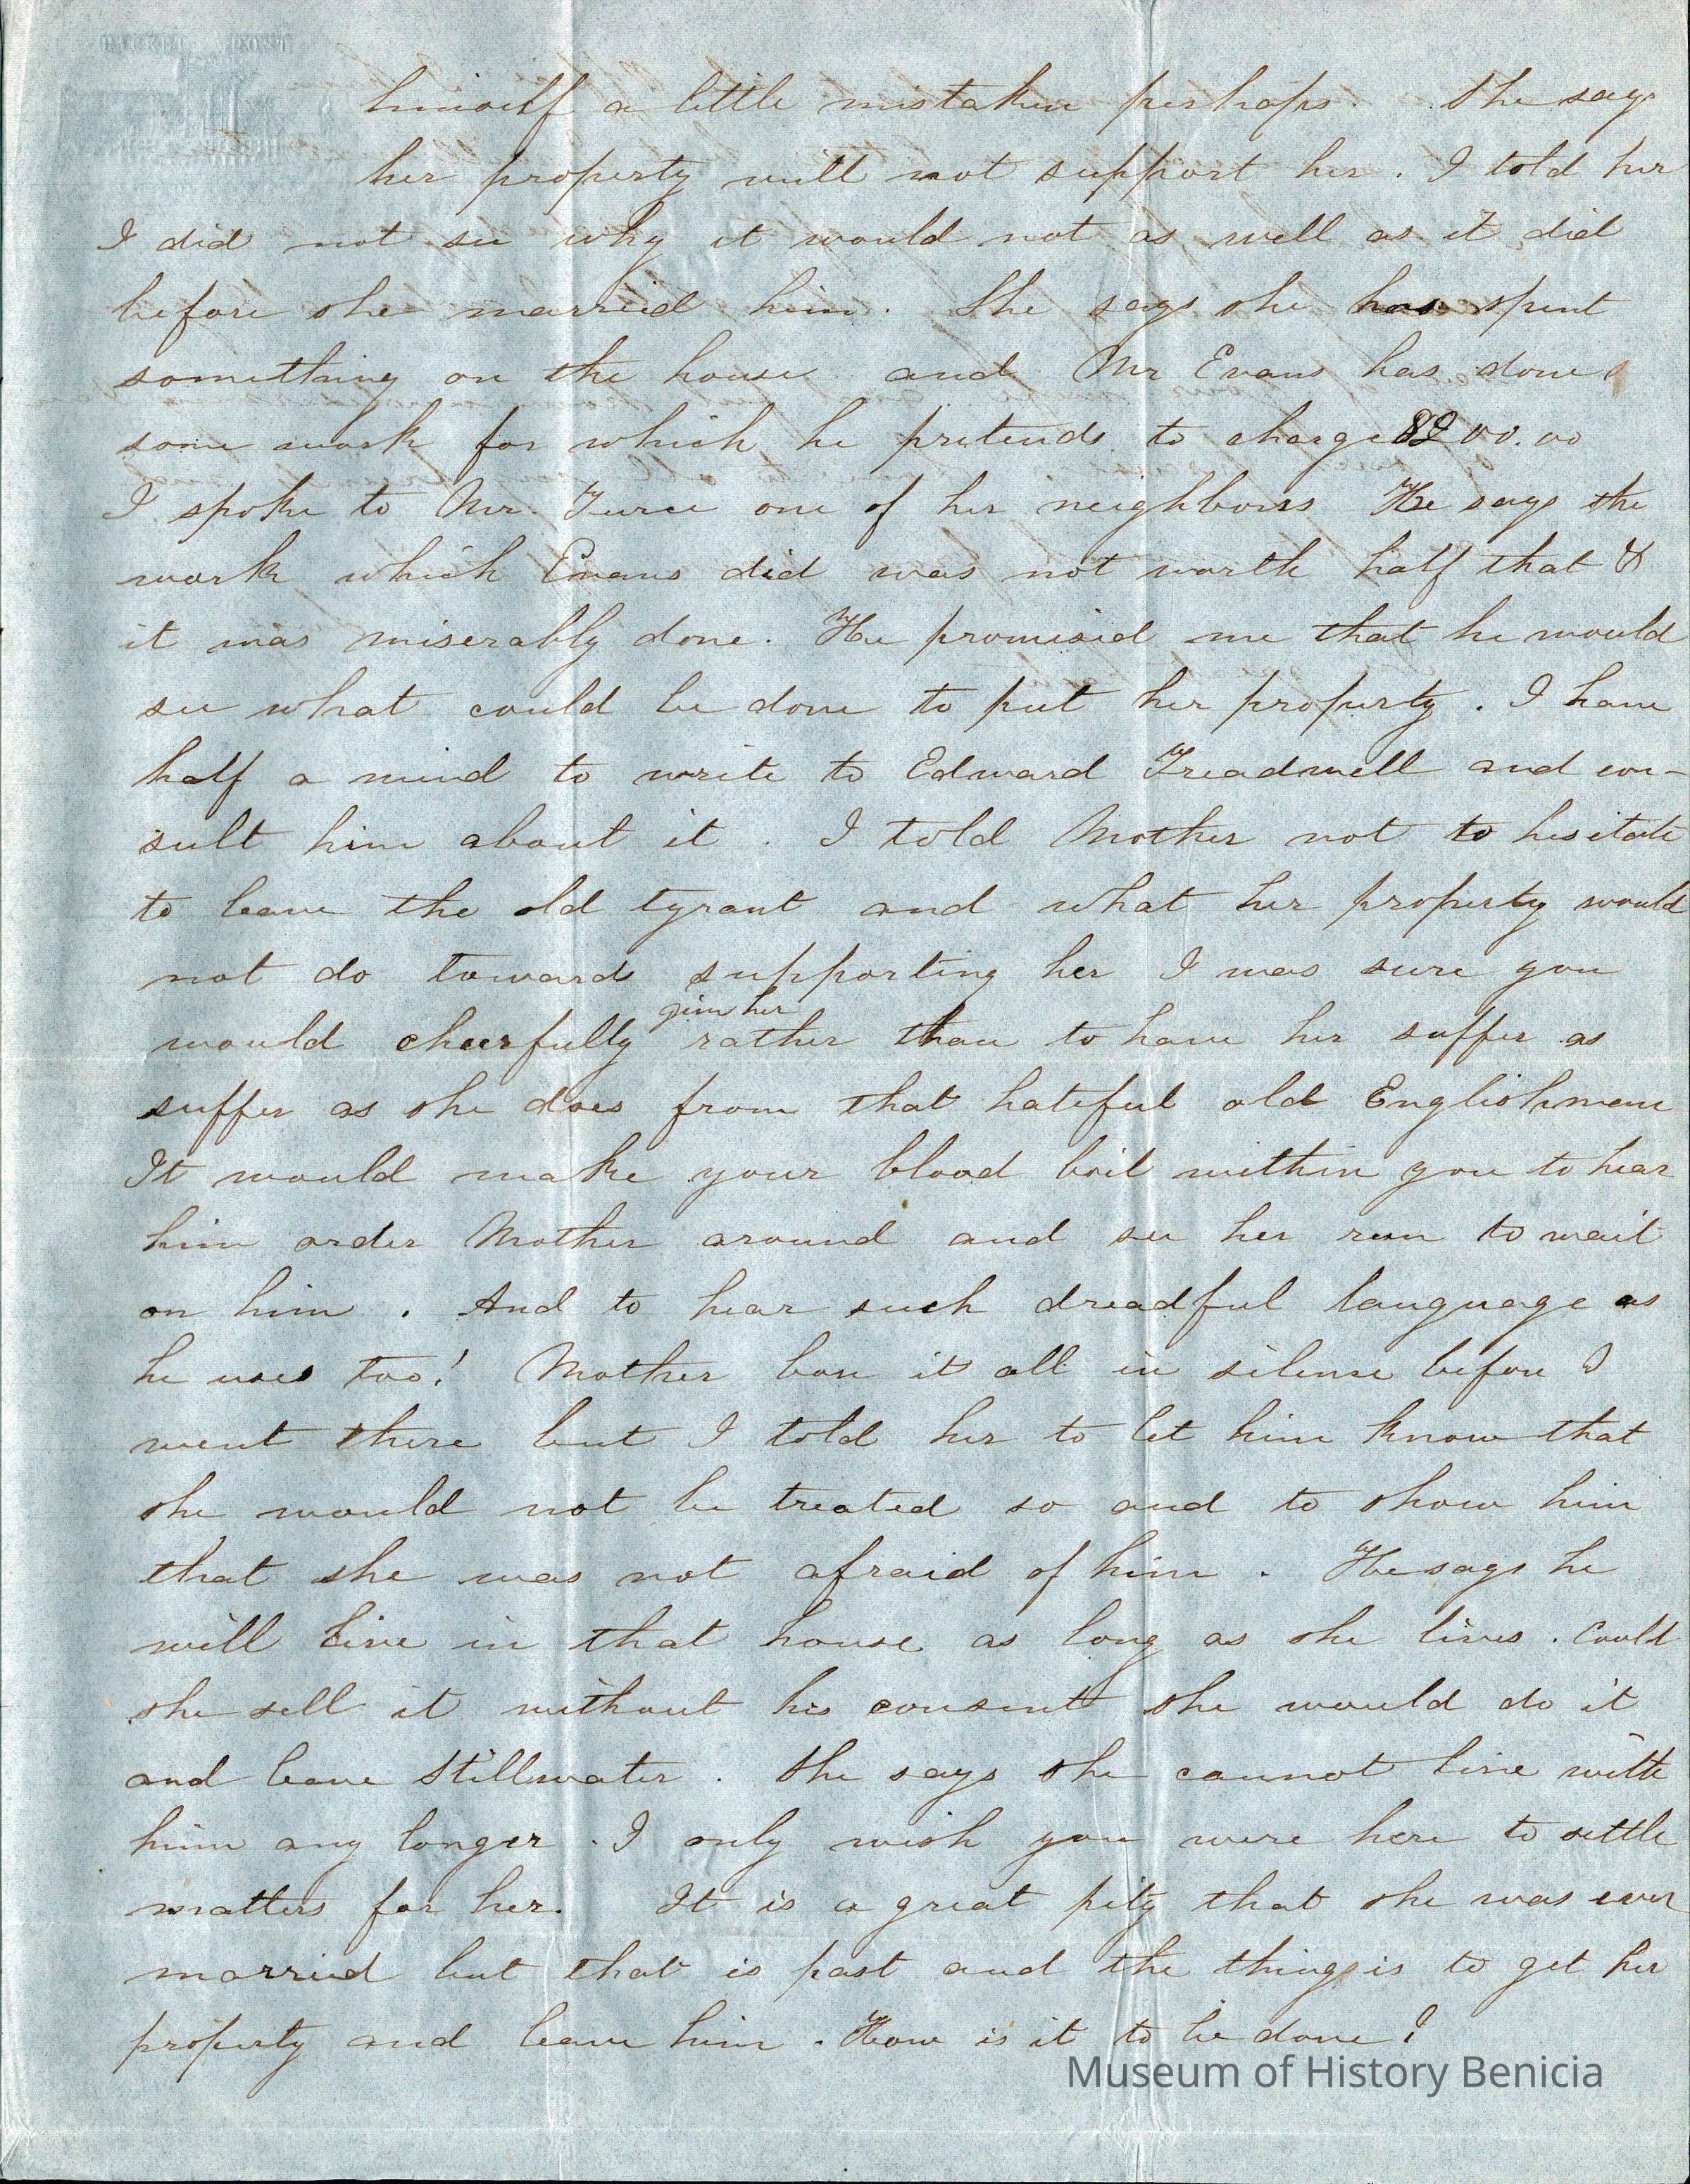 PACKET POST
himself a little mistaken perhaps. She says
her property will not support her. I told her
I did not see why it would not as well as it did
before she married him. She says she has spent
something on the house and Mr Evans has done
some work for which he pretends to charge $200.00
I spoke to Mr. one of her neighbors He says the
work which Evans did was not worth half that &
it was miserably done. He promised me that he would
see what could be done to put her property. I have
half a mind to write to Edward Treadwell and con-
sult him about it. I told Mother not to hesitate
to leave the old tyrant and what her property would
not do toward supporting her I was sure you
give her
would cheerfully rather than to have her suffer as
suffer as she does from that hateful old Englishman
It would make your blood boil within you to hear
him order Mother around and see her run to wait
on him. And to hear such dreadful language as
he uses too! Mother bore it all in silense before I
went there but I told her to let him know that
she would not be treated so and to show him
that she was not afraid of him. He says he
will live in that house as long as she lives. Could
she sell it without his consent she would do it
and leave Stillwater. She says she cannot live with
him any longer. I only wish you were here to settle
matters for her. It is a great pity that she was ever
married but that is past and the thing is to get her
property and leave him. How is it to be done?
Museum of History Benicia